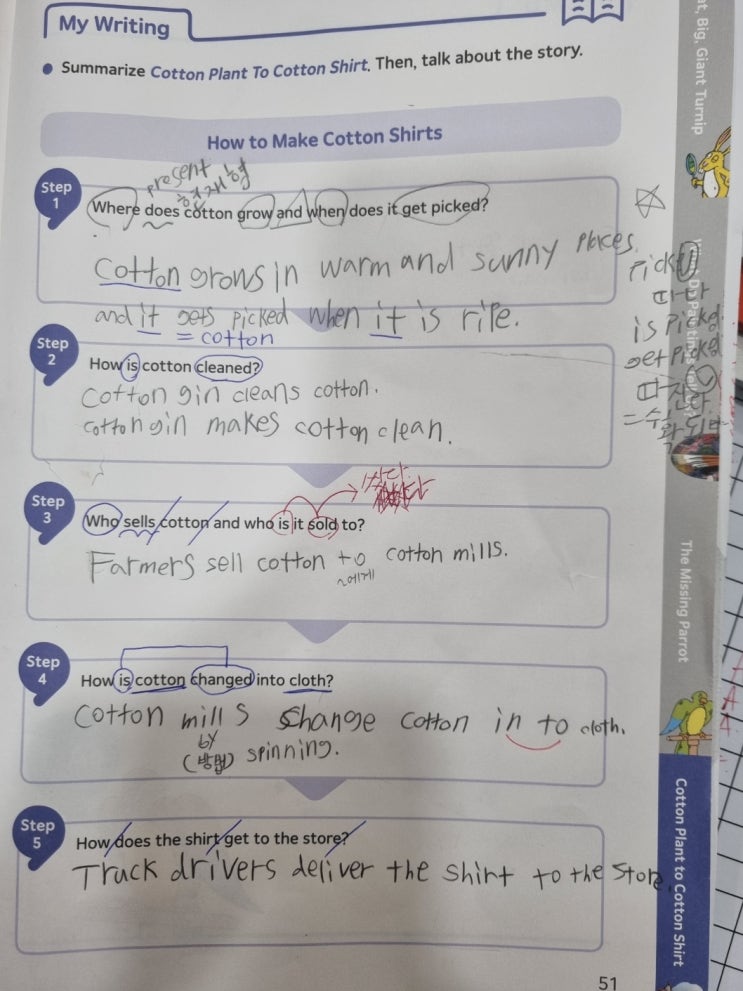 My Writing
Summarize Cotton Plant To Cotton Shirt. Then, talk about the story.
How to Make Cotton Shirts
Step 1
present
현재형
Where does cotton grow and when does it get picked?
Cotton grows in warm and sunny places.
and it gets picked when it is ripe.
= cotton
Pick
따다
is picked
get picked
따진다
Step 2
How is cotton cleaned?
Cotton gin cleans cotton.
Cotton gin makes cotton clean.
Step 3
Who sells cotton and who is it sold to?
Farmers sell cotton to cotton mills.
~에게
Step 4
How is cotton changed into cloth?
Cotton mills change cotton in to cloth.
by
(방법) spinning.
Step 5
How does the shirt get to the store?
Truck drivers deliver the shirt to the store.
at, Big, Giant Turnip
The Missing Parrot
Cotton Plant to Cotton Shirt
51